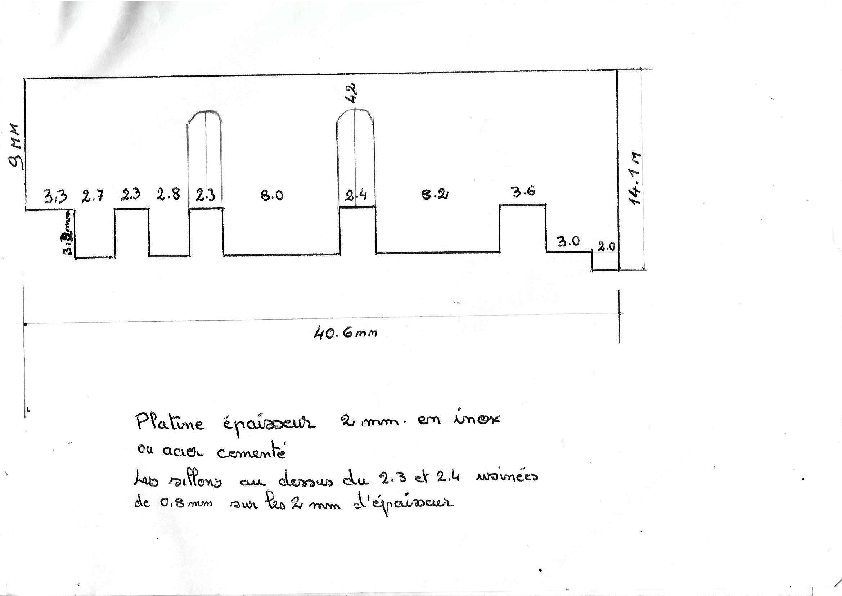 42
9 mm
3.3 2.7 2.3 2.8 2.3 8.0 2.4 8.2 3.6
3.0 2.0
14.1 m
40.6 mm
Platine épaisseur 2 mm. en inox
ou acier cementé
Les sillons au dessus du 2.3 et 2.4 usinées
de 0,8 mm sur les 2 mm d'épaisseur